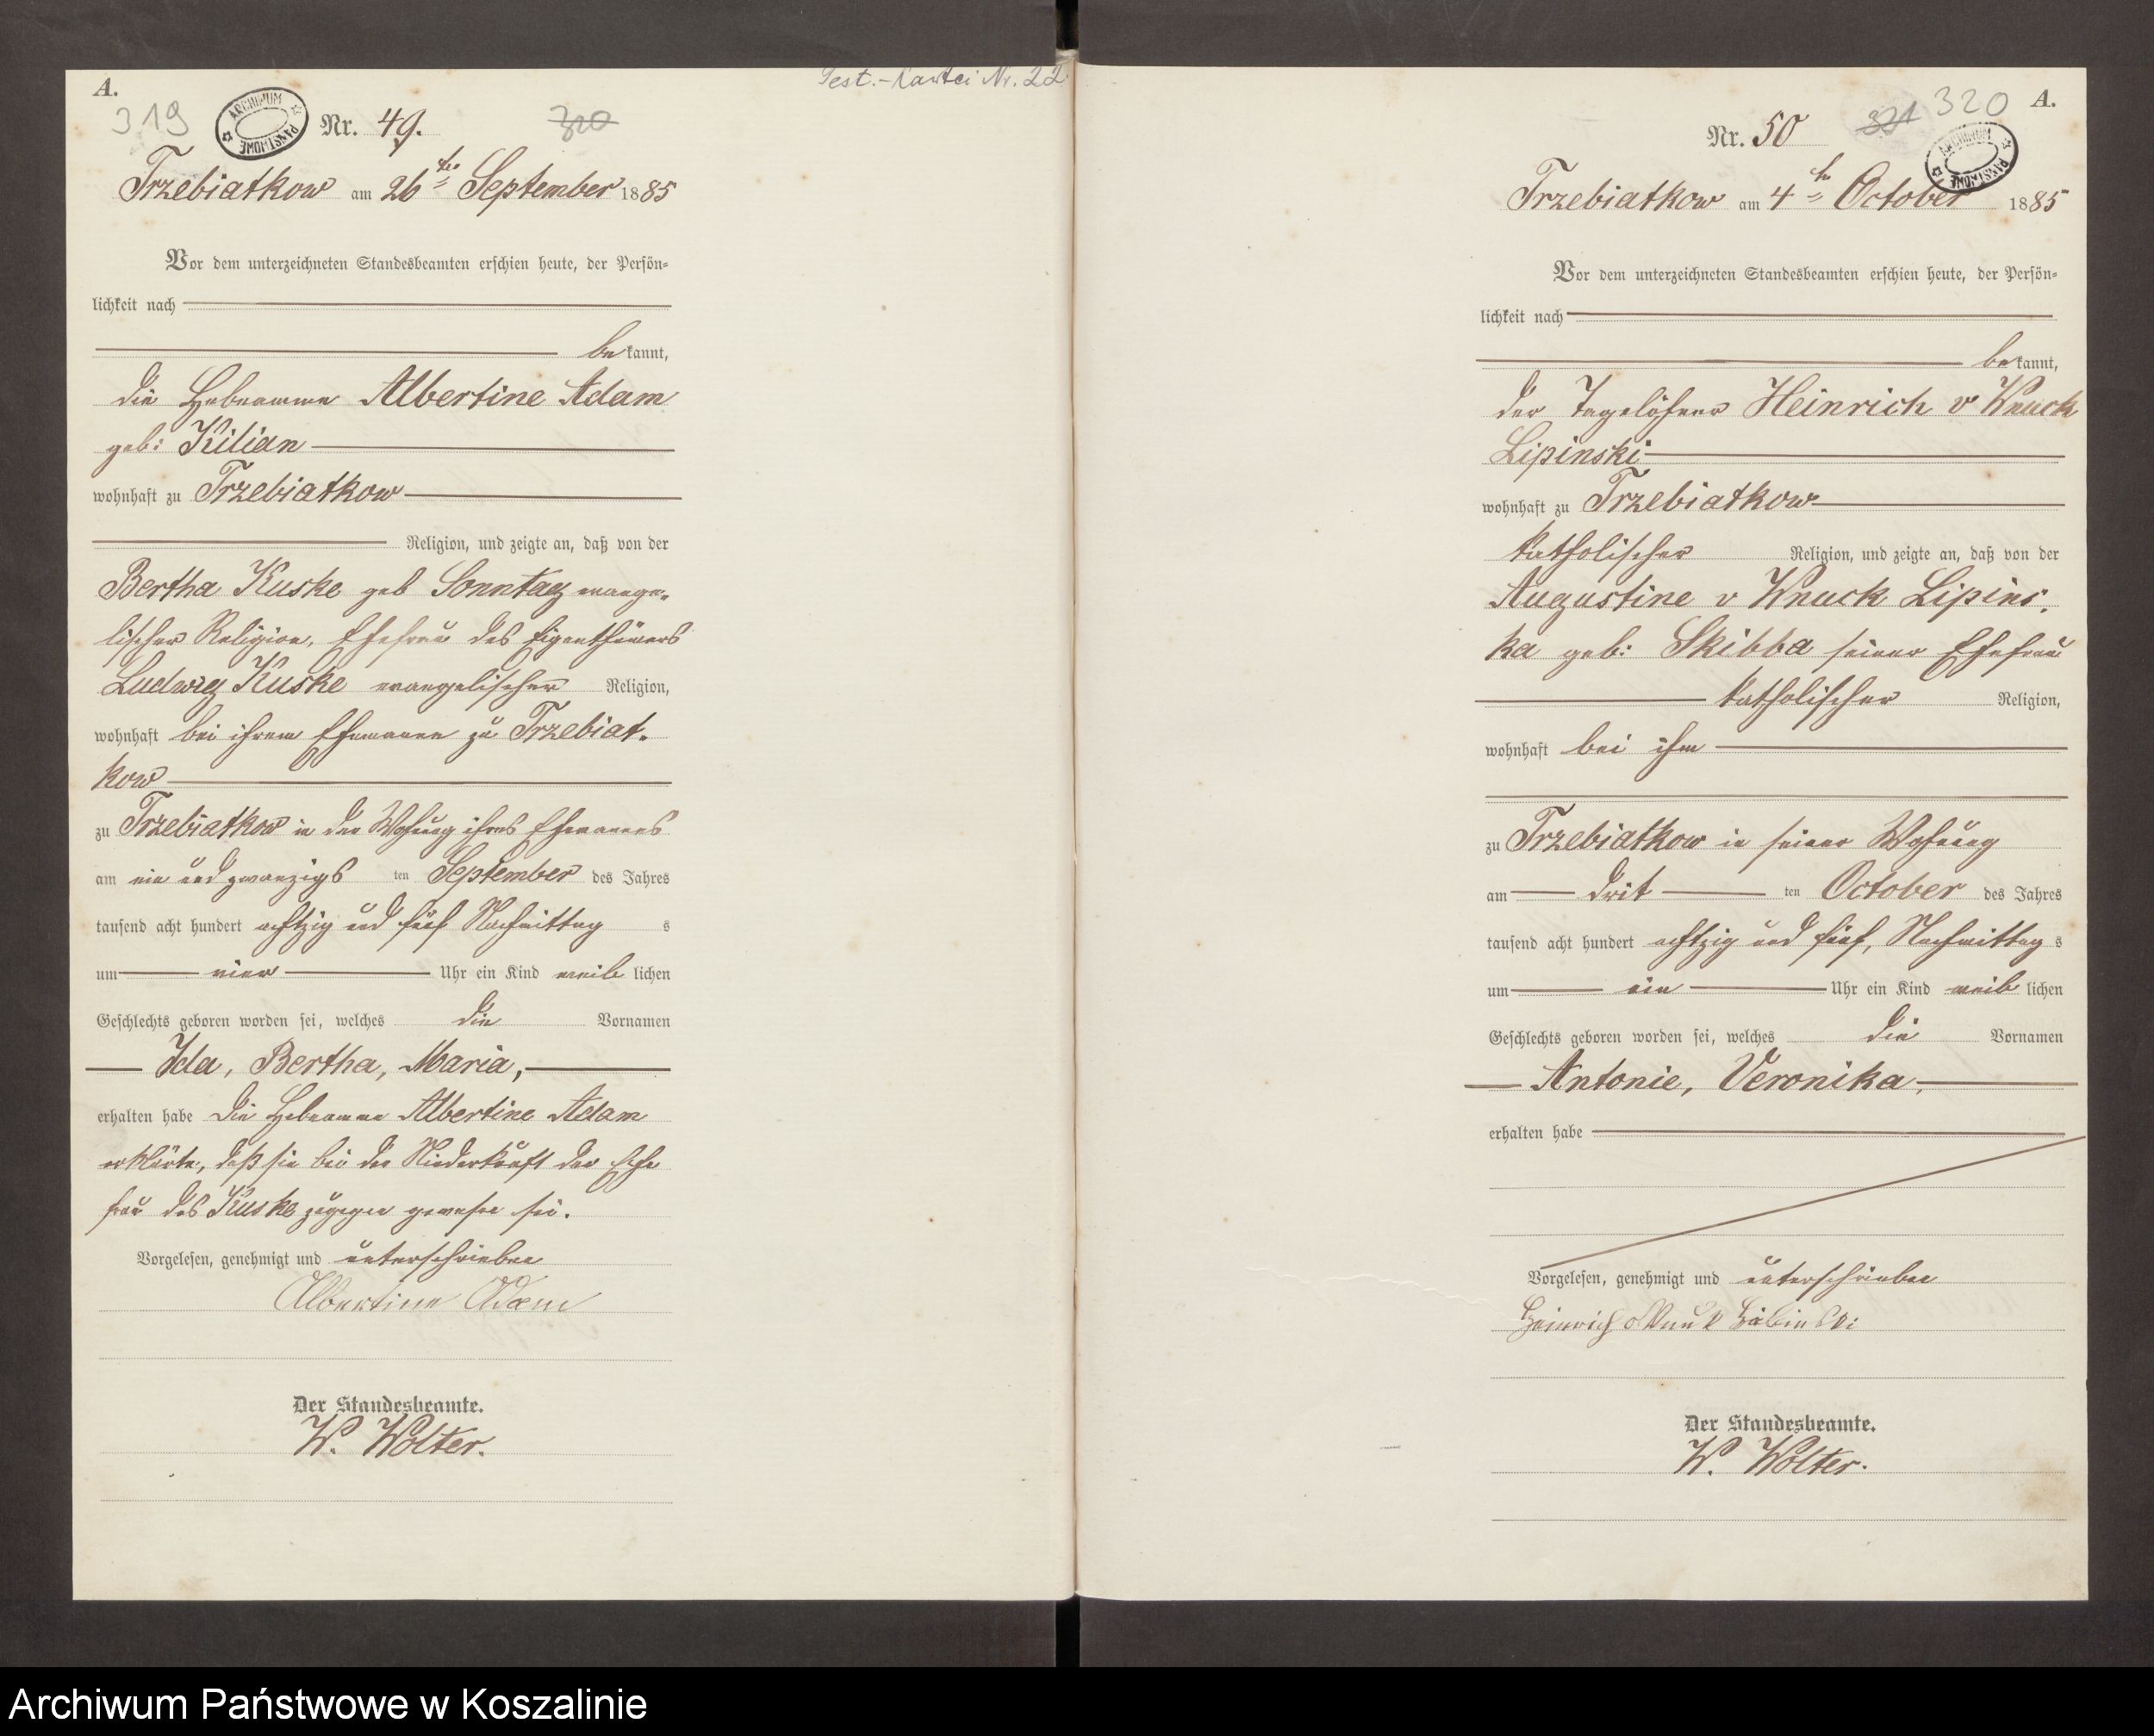 A.
319
ARCHIWUM PAŃSTWOWE
Nr. 49.
320
Test.-Kartei Nr. 22
Trzebiatkow am 26ten September 1885
Vor dem unterzeichneten Standesbeamten erschien heute, der Persön-
lichkeit nach
bekannt,
die Hebeamme Albertine Adam
geb: Kilian
wohnhaft zu Trzebiatkow
Religion, und zeigte an, daß von der
Bertha Kuske geb Sonntag evange-
lischer Religion, Ehefrau des Eigenthümers
Ludwig Kuske evangelischer Religion,
wohnhaft bei ihrem Ehemanne zu Trzebiat-
kow
zu Trzebiatkow in der Wohnung ihres Ehemannes
am ein und zwanzigsten September des Jahres
tausend acht hundert achtzig und fünf Nachmittags
um vier Uhr ein Kind weiblichen
Geschlechts geboren worden sei, welches die Vornamen
Ida, Bertha, Maria,
erhalten habe Die Hebeamme Albertine Adam
erklärte, daß sie bei der Niederkunft der Ehe
frau des Kuske zugegen gewesen sei.
Vorgelesen, genehmigt und unterschrieben
Albertine Adam
Der Standesbeamte.
W. Wolter.
A.
321 320
ARCHIWUM PAŃSTWOWE
Nr. 50
Trzebiatkow am 4ten October 1885
Vor dem unterzeichneten Standesbeamten erschien heute, der Persön-
lichkeit nach
bekannt,
der Tagelöhner Heinrich v Wnuck
Lipinski
wohnhaft zu Trzebiatkow
katholischer Religion, und zeigte an, daß von der
Augustine v Wnuck Lipins-
ka geb: Skibba seiner Ehefrau
katholischer Religion,
wohnhaft bei ihm
zu Trzebiatkow in seiner Wohnung
am dritten October des Jahres
tausend acht hundert achtzig und fünf, Nachmittags
um ein Uhr ein Kind weiblichen
Geschlechts geboren worden sei, welches die Vornamen
Antonie, Veronika,
erhalten habe
Vorgelesen, genehmigt und unterschrieben
Heinrich v Wnuk Libinski
Der Standesbeamte.
W. Wolter.
Archiwum Państwowe w Koszalinie